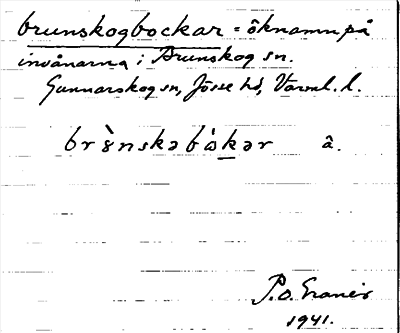 brunskogbockar = öknamn på
invånarna i Brunskog sn.
Gunnarskog sn, Jösse hd, Värml. l.
br8̀nskə bò̀kər â.
P.O. Granér
1941.